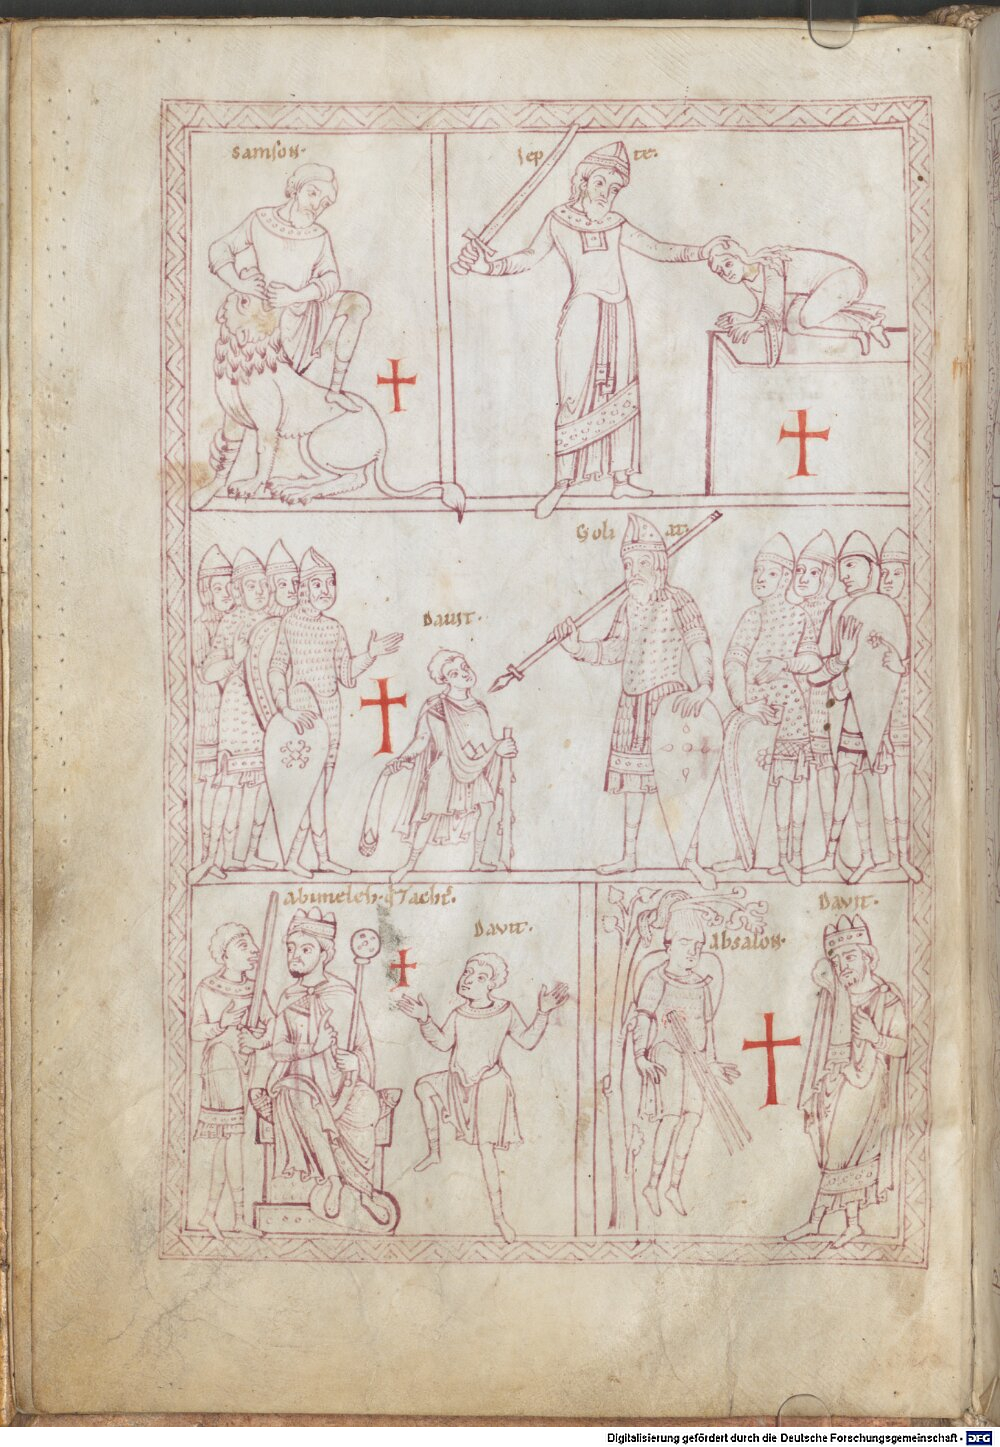 samson·
Jep te·
Goli at·
Dauit·
Abimeleh·
Dauit·
Dauit·
Absalon·
Digitalisierung gefördert durch die Deutsche Forschungsgemeinschaft - DFG